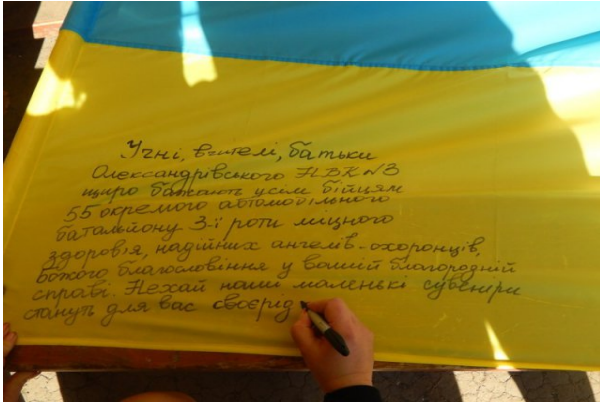 Учні, вчителі, батьки
Олександрівського НВК №3
щиро бажають усім бійцям
55 окремого автомобільного
батальйону 3-ї роти міцного
здоров'я, надійних ангелів-охоронців,
Божого благословіння у вашій благородній
справі. Нехай наші маленькі сувеніри
стануть для вас своєрід